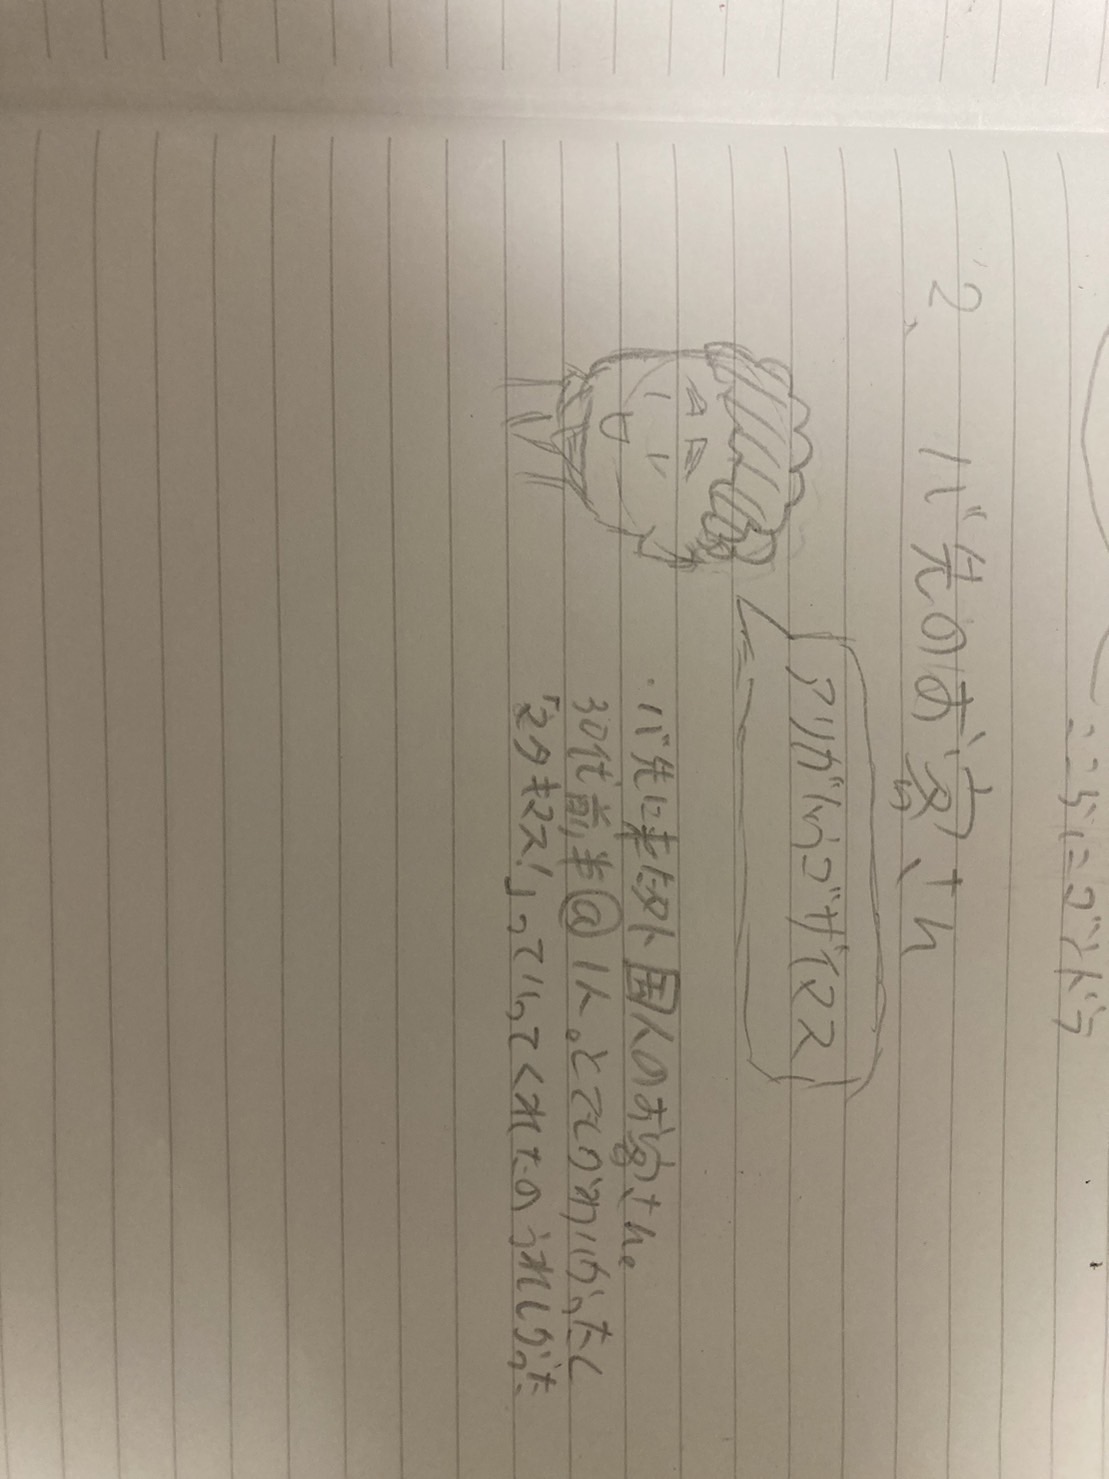 ここらにゴンドラ
2、バ先のお客さん
アリガトウゴザイマス
・バ先に来た外国人のお客さん。
30代前半@1人。とてもかわいかったし
「マタキマス！」っていってくれたのうれしかった